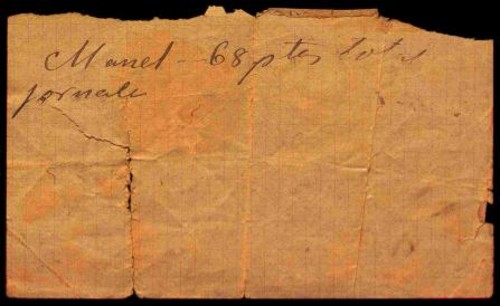 Manel - 68 ptes total
jornals